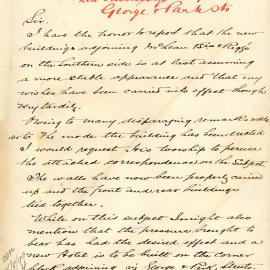 George & Park Sts
Sir,
I have the honor to report that the new
buildings adjoining McLean Bros & Riggs
on the Southern side is at last assuming
a more stable appearance and that my
wishes have been carried into effect though
very tardily.
Owing to many disparaging remarks made
as to the mode the building has been erected
I would request His Worship to peruse
the attached correspondence on the subject.
The walls have now been properly carried
up and the front and rear buildings
tied together.
While on this subject I might also
mention that the pressure brought to
bear has had the desired effect and a
new Hotel is to be built on the corner
block adjoining viz George & Park Streets